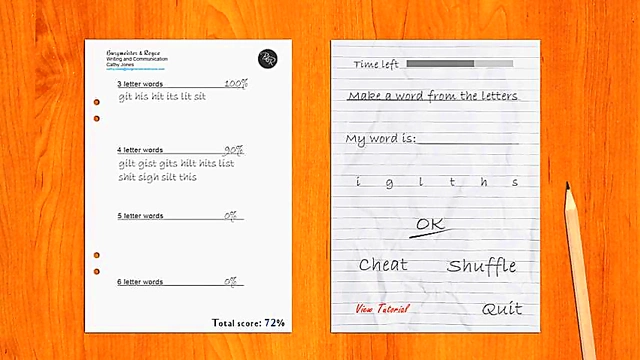 Burgmeister & Royce
Writing and Communication
Cathy Jones
3 letter words 100%
git his hit its lit sit
4 letter words 90%
gilt gist gits hilt hits list
shit sigh silt this
5 letter words 0%
6 letter words 0%
Total score: 72%
Time left
Make a word from the letters
My word is:
i g l t h s
OK
Cheat Shuffle
View Tutorial Quit